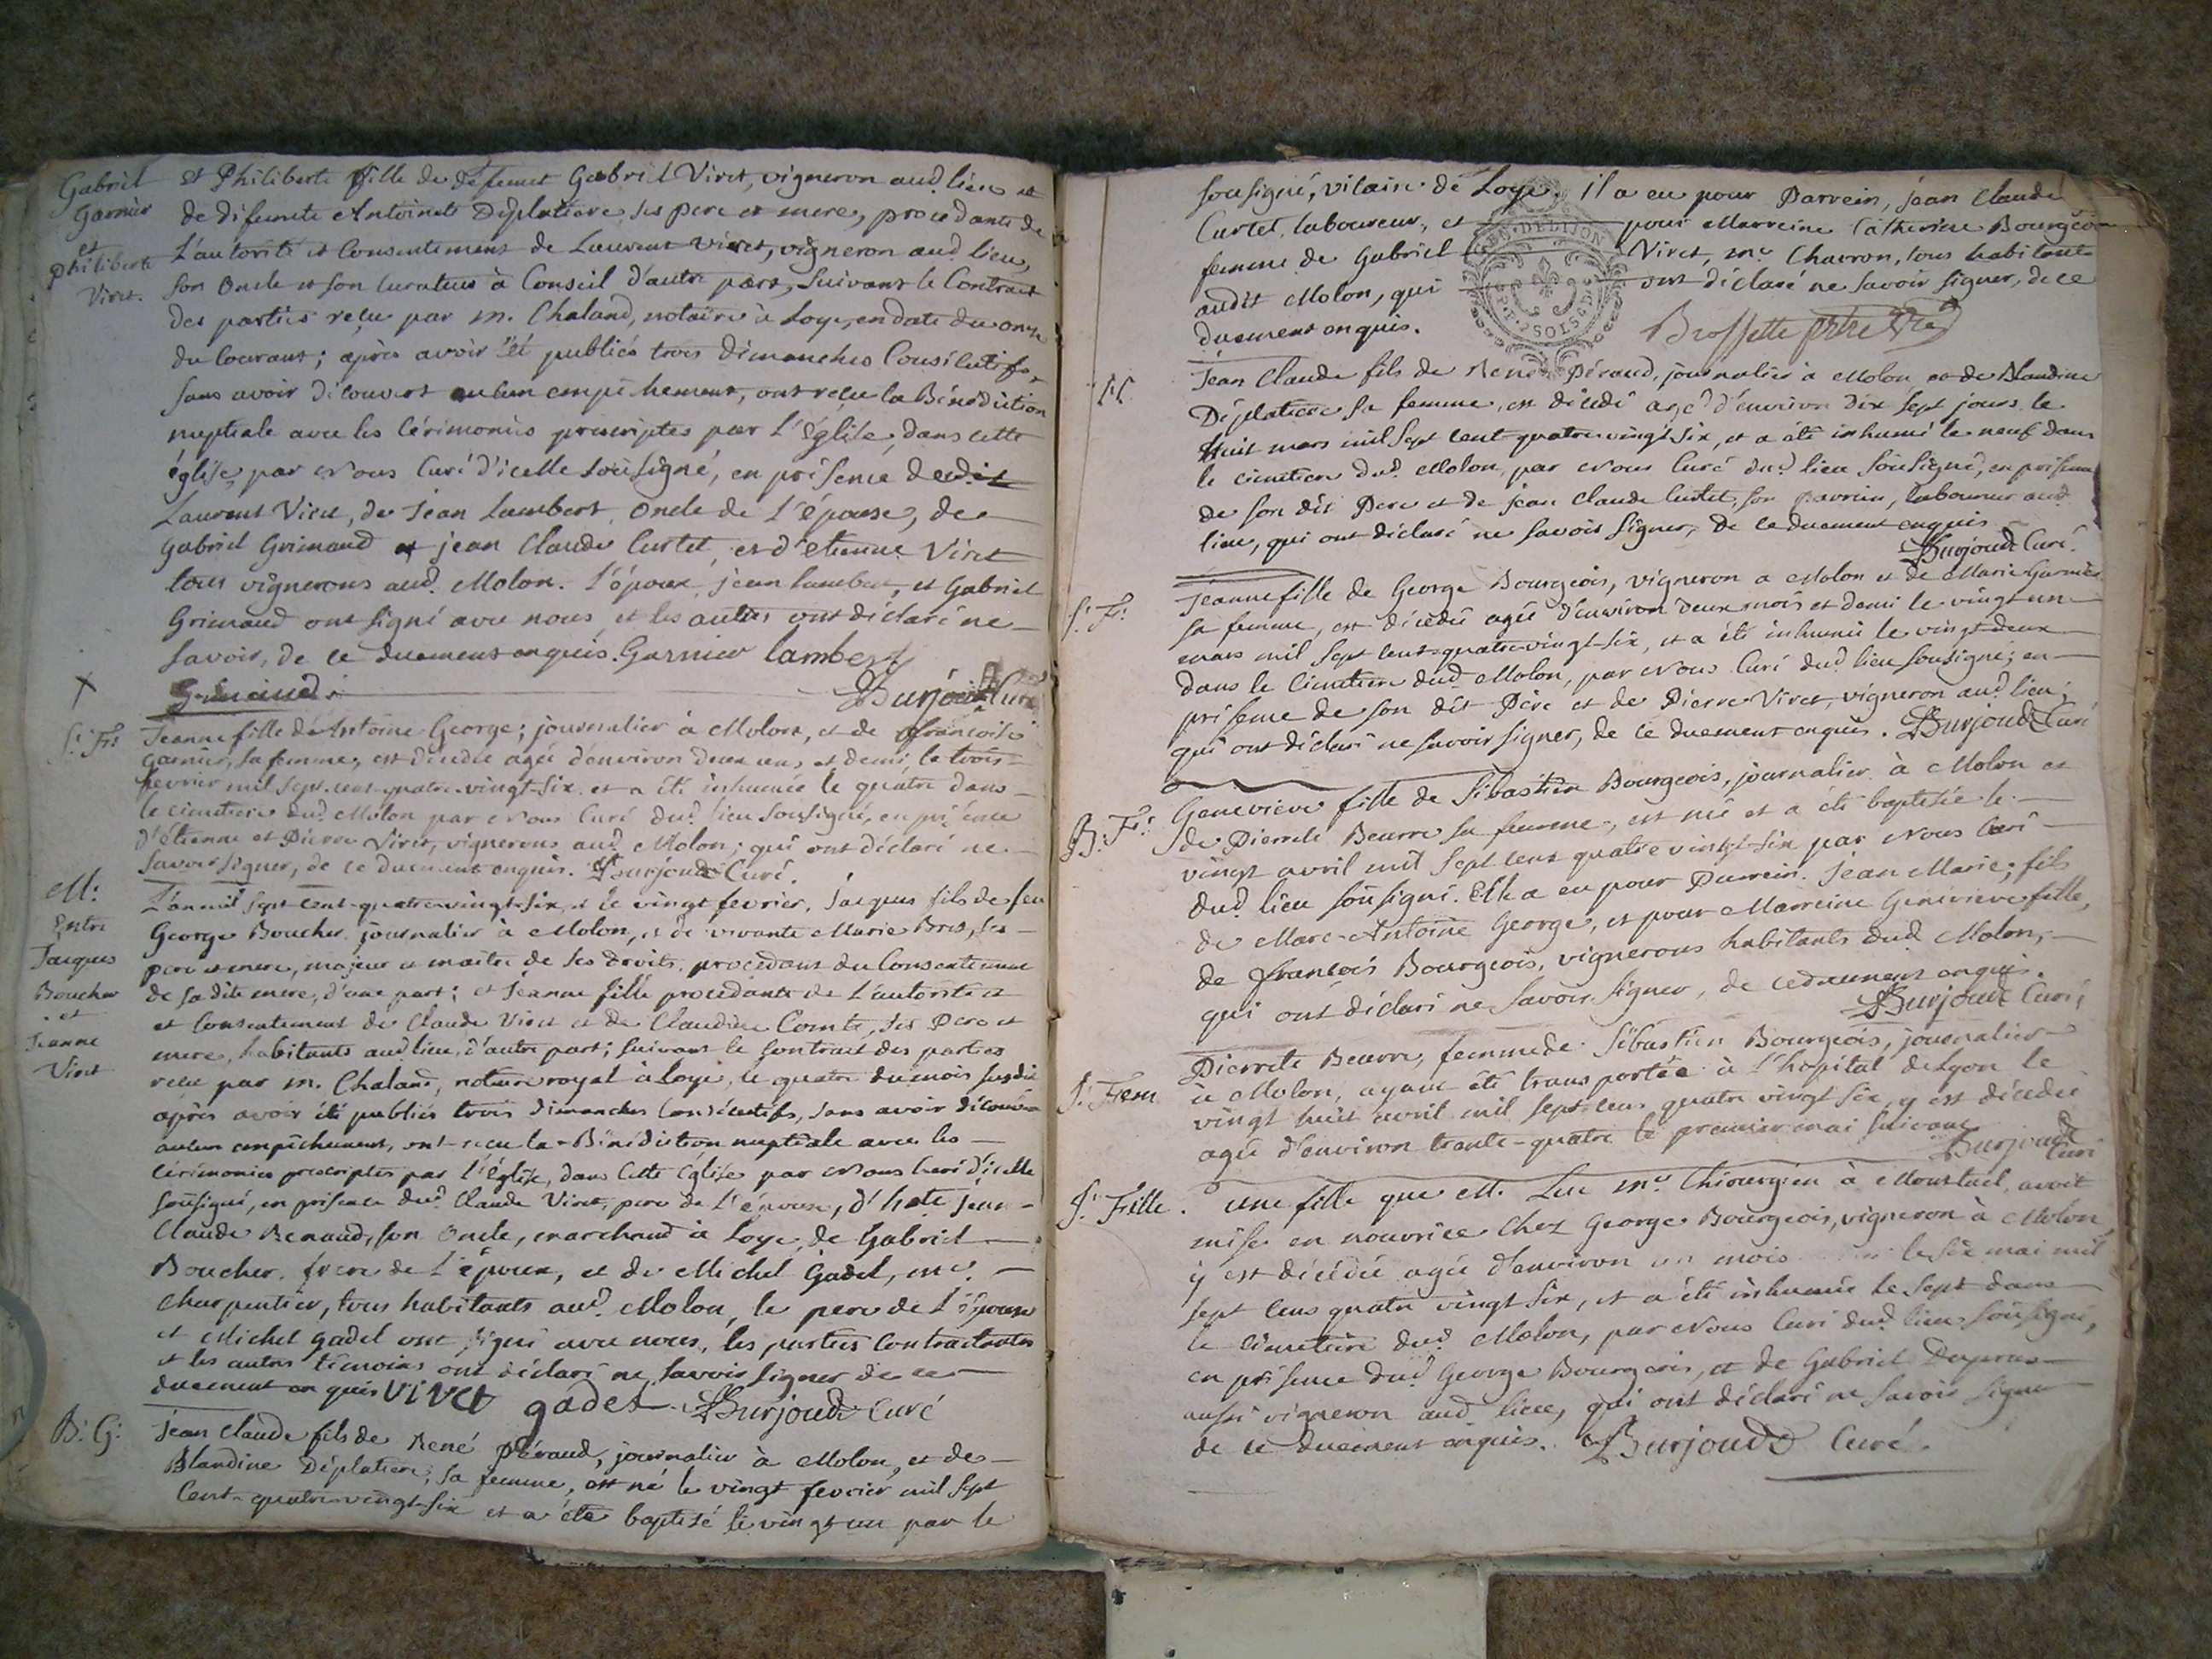 Gabriel
Garnier
et
Philiberte
Viret.
et Philiberte fille de défunct Gabriel Viret, vigneron aud. lieu et
de défuncte Antoinete Déplatiere, ses pere et mere, procedante de
L'autorité et Consentement de Laurent Viret, vigneron aud lieu,
son Oncle et son Curateur à Conseil d'autre part, suivant le Contract
des parties reçu par m. Chaland, notaire à Loye, en date du onze
du Courant; après avoir été publiés trois dimanches Consécutifs,
sans avoir découvert aucun empêchement, ont reçu la Bénédiction
nuptiale avec les Cérimonies prescriptes par L'église, dans cette
église, par Nous Curé d'icelle soûsigné, en présence dudit
Laurent Viret, de Jean Lambert, Oncle de L'épouse, de
Gabriel Grimaud et jean Claude Curtet, et d'etienne Viret
tous vignerons aud. Molon. L'époux, jean lambert, et Gabriel
Grimaud ont signé avec nous, et les autres ont déclaré ne
savoir, de ce duement enquis. Garnier lambert
Grimaud Burjoud Curé
S: F:
Jeanne fille de Antoine George; journalier à Molon, et de françoise
Garnier, sa femme, est décédée agée d'environ deux ans et demi le trois
fevrier mil sept cent quatre-vingt-six et a été inhumée le quatre dans
le cimetiere dud. Molon par Nous Curé dud. lieu soûsigné, en présence
d'étienne et Pierre Viret, vignerons aud. Molon; qui ont déclaré ne
savoir signer, de ce duement enquis. Burjoud Curé.
M:
Entre
Jacques
Boucher
et
Jeanne
Viret
L'an mil sept-cent-quatre-vingt-six, et le vingt fevrier, Jacques fils de feu
George Boucher journalier à Molon, et de vivante Marie Bres, ses
pere et mere, majeur et maitre de ses droits, procedant du Consentement
de sa dite mere, d'une part; et Jeanne fille procedante de L'autorité et
et Consentement de Claude Viret et de Claudine Comte, ses Pere et
mere, habitants aud lieu, d'autre part; suivant le Contract des parties
reçu par m. Chaland, notaire royal à Loye, le quatre du mois susdit
après avoir été publiés trois dimanches Consécutifs, sans avoir découvert
aucun empêchement, ont reçu la Bénédiction nuptiale avec les
Cérémonies prescriptes par l'église, dans Cette église par Nous Curé d'icelle
soûsigné, en présence dud. Claude Viret, pere de L'épouse, Jean
Claude Renaud, son Oncle, marchand à Loye, de Gabriel
Boucher, frere de L'époux, et de Michel Gadel, me.
Charpentier, tous habitants aud. Molon, le pere de L'épouse
et Michel Gadel ont signé avec nous, les parties Contractantes
et les autres témoins ont déclaré ne savoir signer de ce
duement enquis Viret gadel Burjoud Curé
B: G:
Jean Claude fils de René Péraud, journalier à Molon, et de
Blandine Déplatiere, sa femme, est né le vingt fevrier mil sept
Cent-quatre-vingt-six et a été baptisé le vingt un par le
soûsigné, vicaire de Loye. il a eu pour Parrein, jean Claude
Curtet, laboureur, et pour Marreine Catherine Bourgeois
femme de Gabriel Viret, me. Charron, tous habitants
audit Molon, qui ont déclaré ne savoir signer, de ce
duement enquis. Brossette ptre vre
GEN. DE DIJON
Jean Claude fils de René Péraud, journalier à Molon et de Blandine
Déplatiere sa femme, est décédé agé d'environ dix sept jours le
huit mars mil sept cent quatre vingt six, et a été inhumé le neuf dans
le cimetiere dud. Molon, par Nous Curé dud. lieu soûsigné, en présence
de son dit Pere et de jean Claude Curtet, son Parrein, laboureur aud
lieu, qui ont déclaré ne savoir signer, de ce duement enquis
Burjoud Curé.
S: F:
Jeanne fille de George Bourgeois, vigneron a Molon et de Marie Garnier
sa femme, est décédée agée d'environ deux mois et demi le vingt un
mars mil sept cent quatre-vingt-six, et a été inhumée le vingt-deux
dans le Cimetiere dud. Molon, par Nous Curé dud. lieu soûsigné; en
présence de son dit Père et de Pierre Viret, vigneron aud. lieu;
qui ont déclaré ne savoir signer, de ce duement enquis. Burjoud Curé
B: F:
Genevieve fille de Sébastien Bourgeois, journalier à Molon et
de Pierrete Beurre sa femme, est née et a été baptisée le
vingt avril mil sept cent quatre vingt-six par Nous Curé
dud. lieu soûsigné. Elle a eu pour Parrein Jean Marie; fils
de Marc-Antoine George, et pour Marreine Genevieve fille,
de françois Bourgeois, vignerons habitants dud Molon,
qui ont déclaré ne savoir signer, de ce duement enquis.
Burjoud Curé
S: Fem
Pierrete Beurre, femme de Sébastien Bourgeois, journalier
à Molon, ayant été transportée à l'hopital de Lyon le
vingt huit avril mil sept cent quatre vingt six, y est décédée
agée d'environ trante-quatre le premier mai suivant
Burjoud
Curé
S: Fille.
une fille que M. Luc me. Chirurgien à Montluel, avoit
mise en nourrice Chez George Bourgeois, vigneron à Molon
y est décédée agée d'environ un mois le six mai mil
sept cent quatre vingt six, et a été inhumée le sept dans
le Cimetiere dud. Molon, par Nous Curé dud. lieu soûsigné,
en présence dud. George Bourgeois, et de Gabriel
aussi vigneron aud. lieu, qui ont déclaré ne savoir signer
de ce duement enquis. Burjoud Curé.